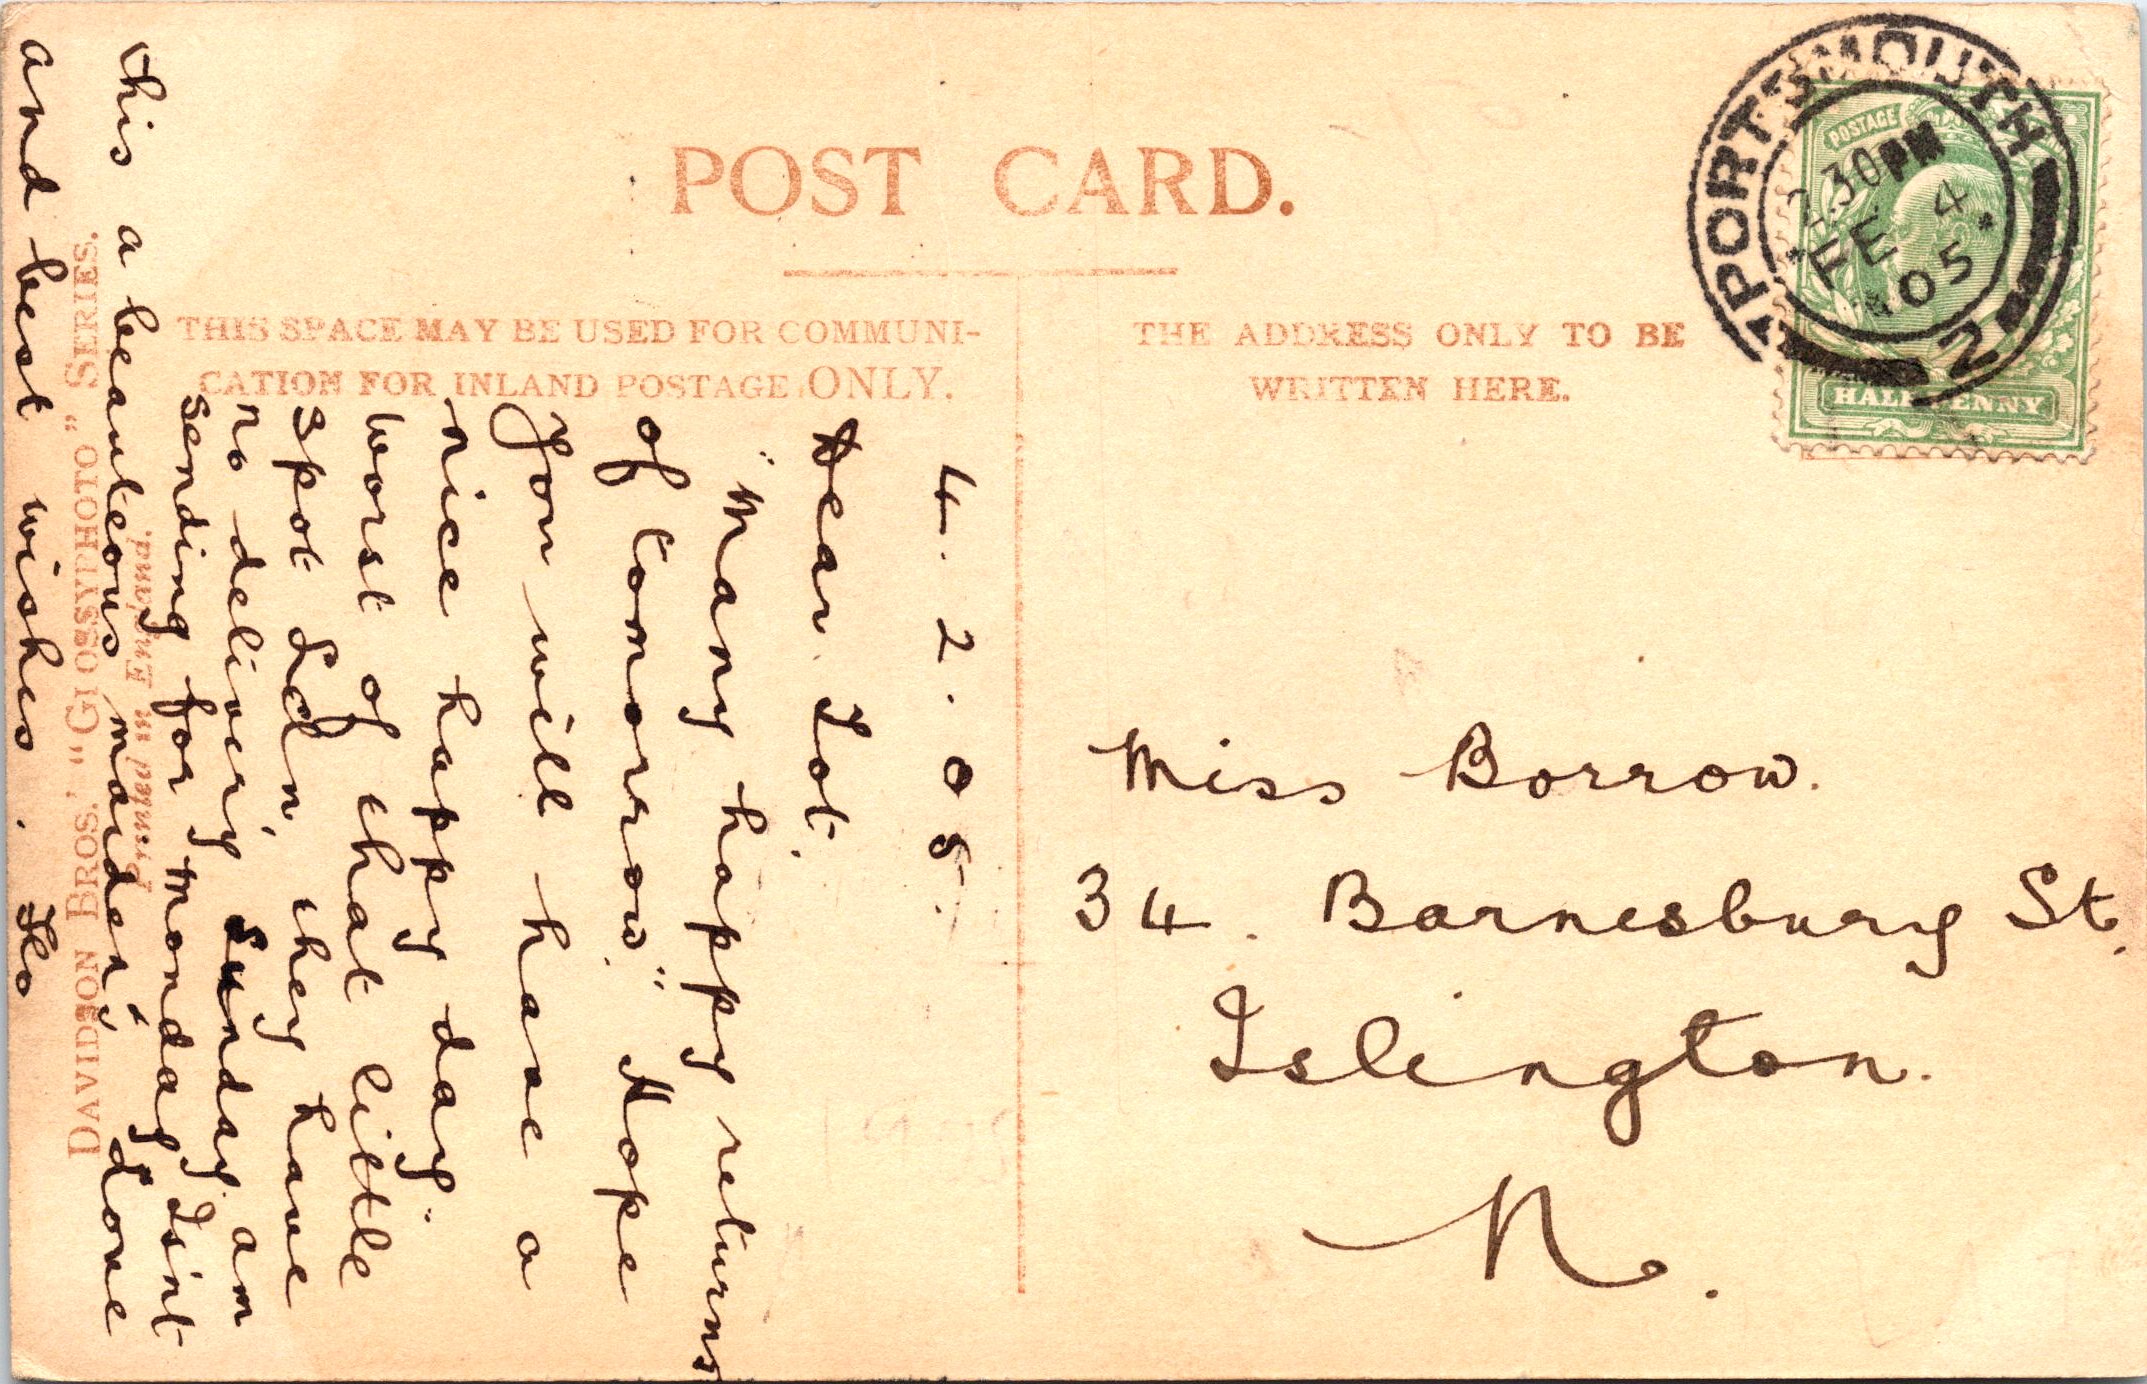 POST CARD.
THIS SPACE MAY BE USED FOR COMMUNI-
CATION FOR INLAND POSTAGE ONLY.
THE ADDRESS ONLY TO BE
WRITTEN HERE.
PORTSMOUTH
2.30PM
FE 4
05
2
POSTAGE
HALFPENNY
4.2.05.
Dear Lot.
"Many happy returns
of tomorrow." Hope
you will have a
nice happy day.
Worst of that little
spot Ldn, they have
no delivery Sunday am
sending for Monday Isint
this a beauteous maiden, Love
and best wishes. Flo
Miss Borrow.
34. Barnesbury St.
Islington.
N.
DAVIDSON BROS.' "GLOSSYPHOTO" SERIES.
Printed in England.